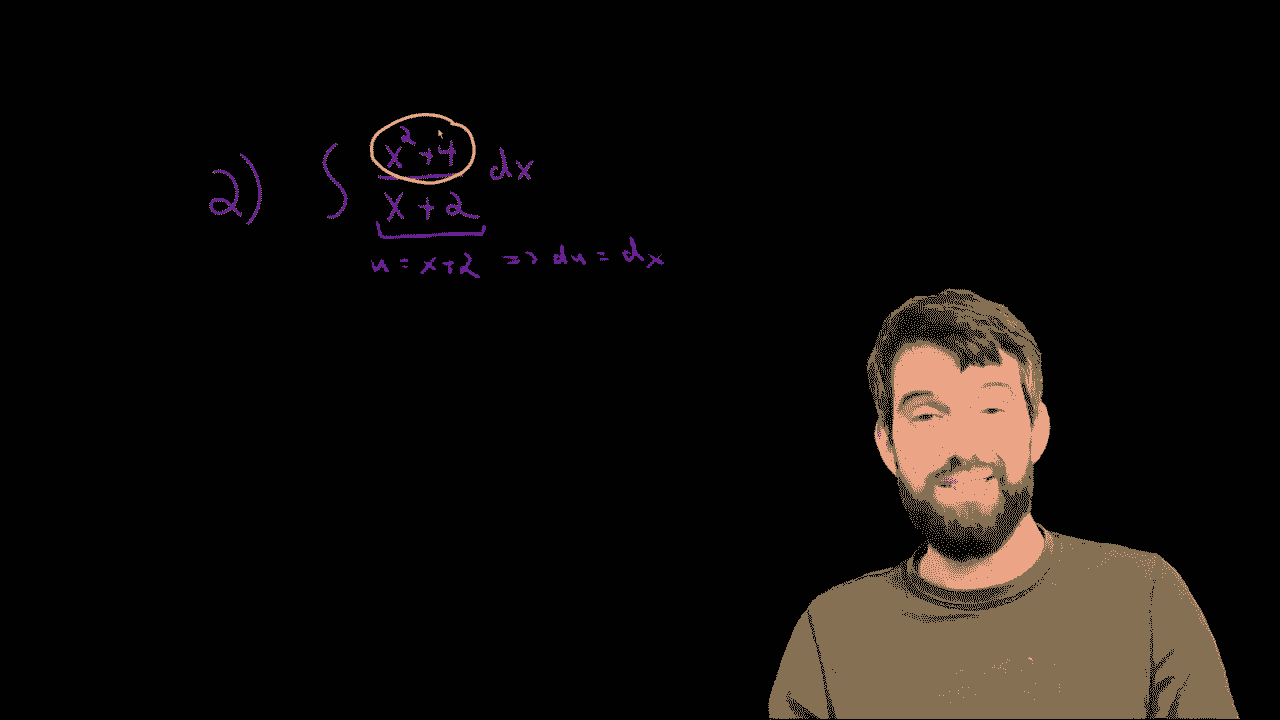 2) ∫ x²+4 / x+2 dx
u = x+2 => du = dx